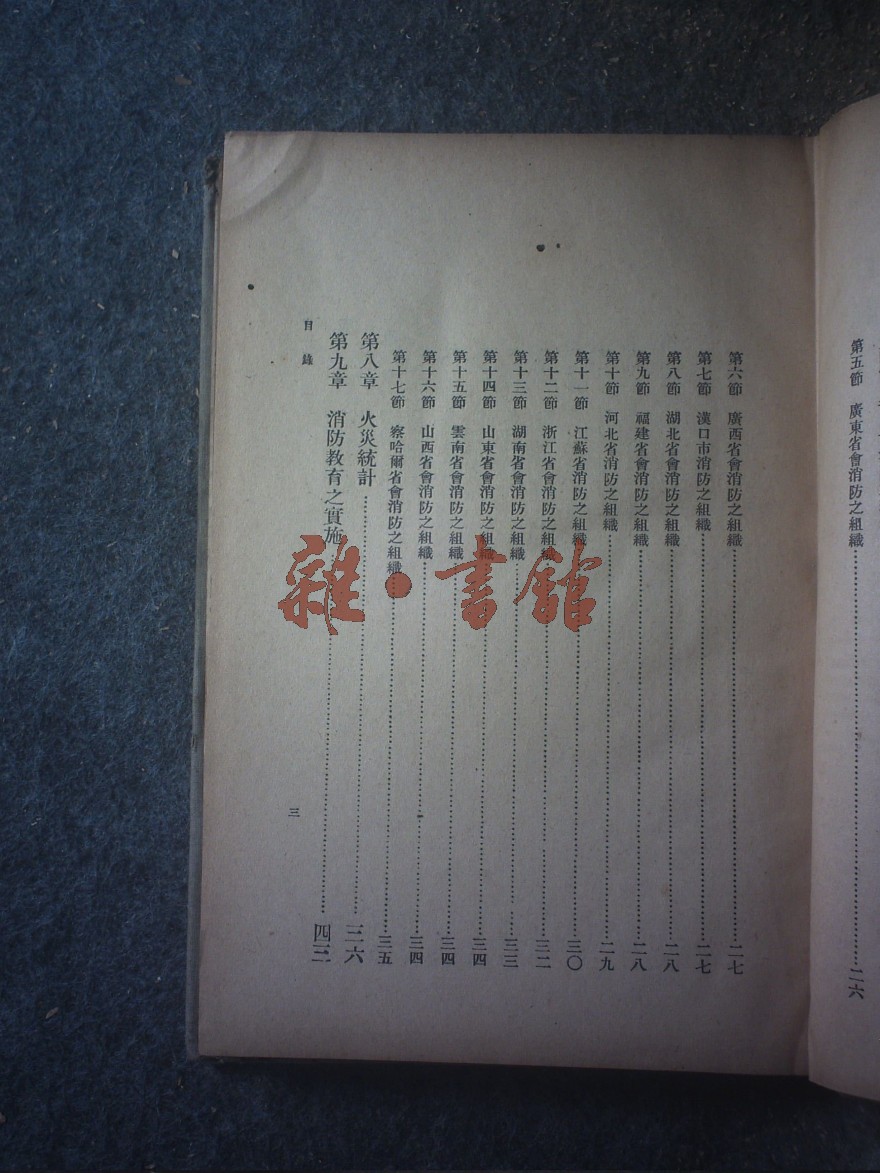 第五節　廣東省會消防之組織……二六
第六節　廣西省會消防之組織……二七
第七節　漢口市消防之組織……二七
第八節　湖北省會消防之組織……二八
第九節　福建省會消防之組織……二八
第十節　河北省消防之組織……二九
第十一節　江蘇省消防之組織……三〇
第十二節　浙江省會消防之組織……三二
第十三節　湖南省會消防之組織……三三
第十四節　山東省會消防之組織……三四
第十五節　雲南省會消防之組織……三四
第十六節　山西省會消防之組織……三四
第十七節　察哈爾省會消防之組織……三五
第八章　火災統計……三六
第九章　消防教育之實施……四三
目錄
三
雜·書館